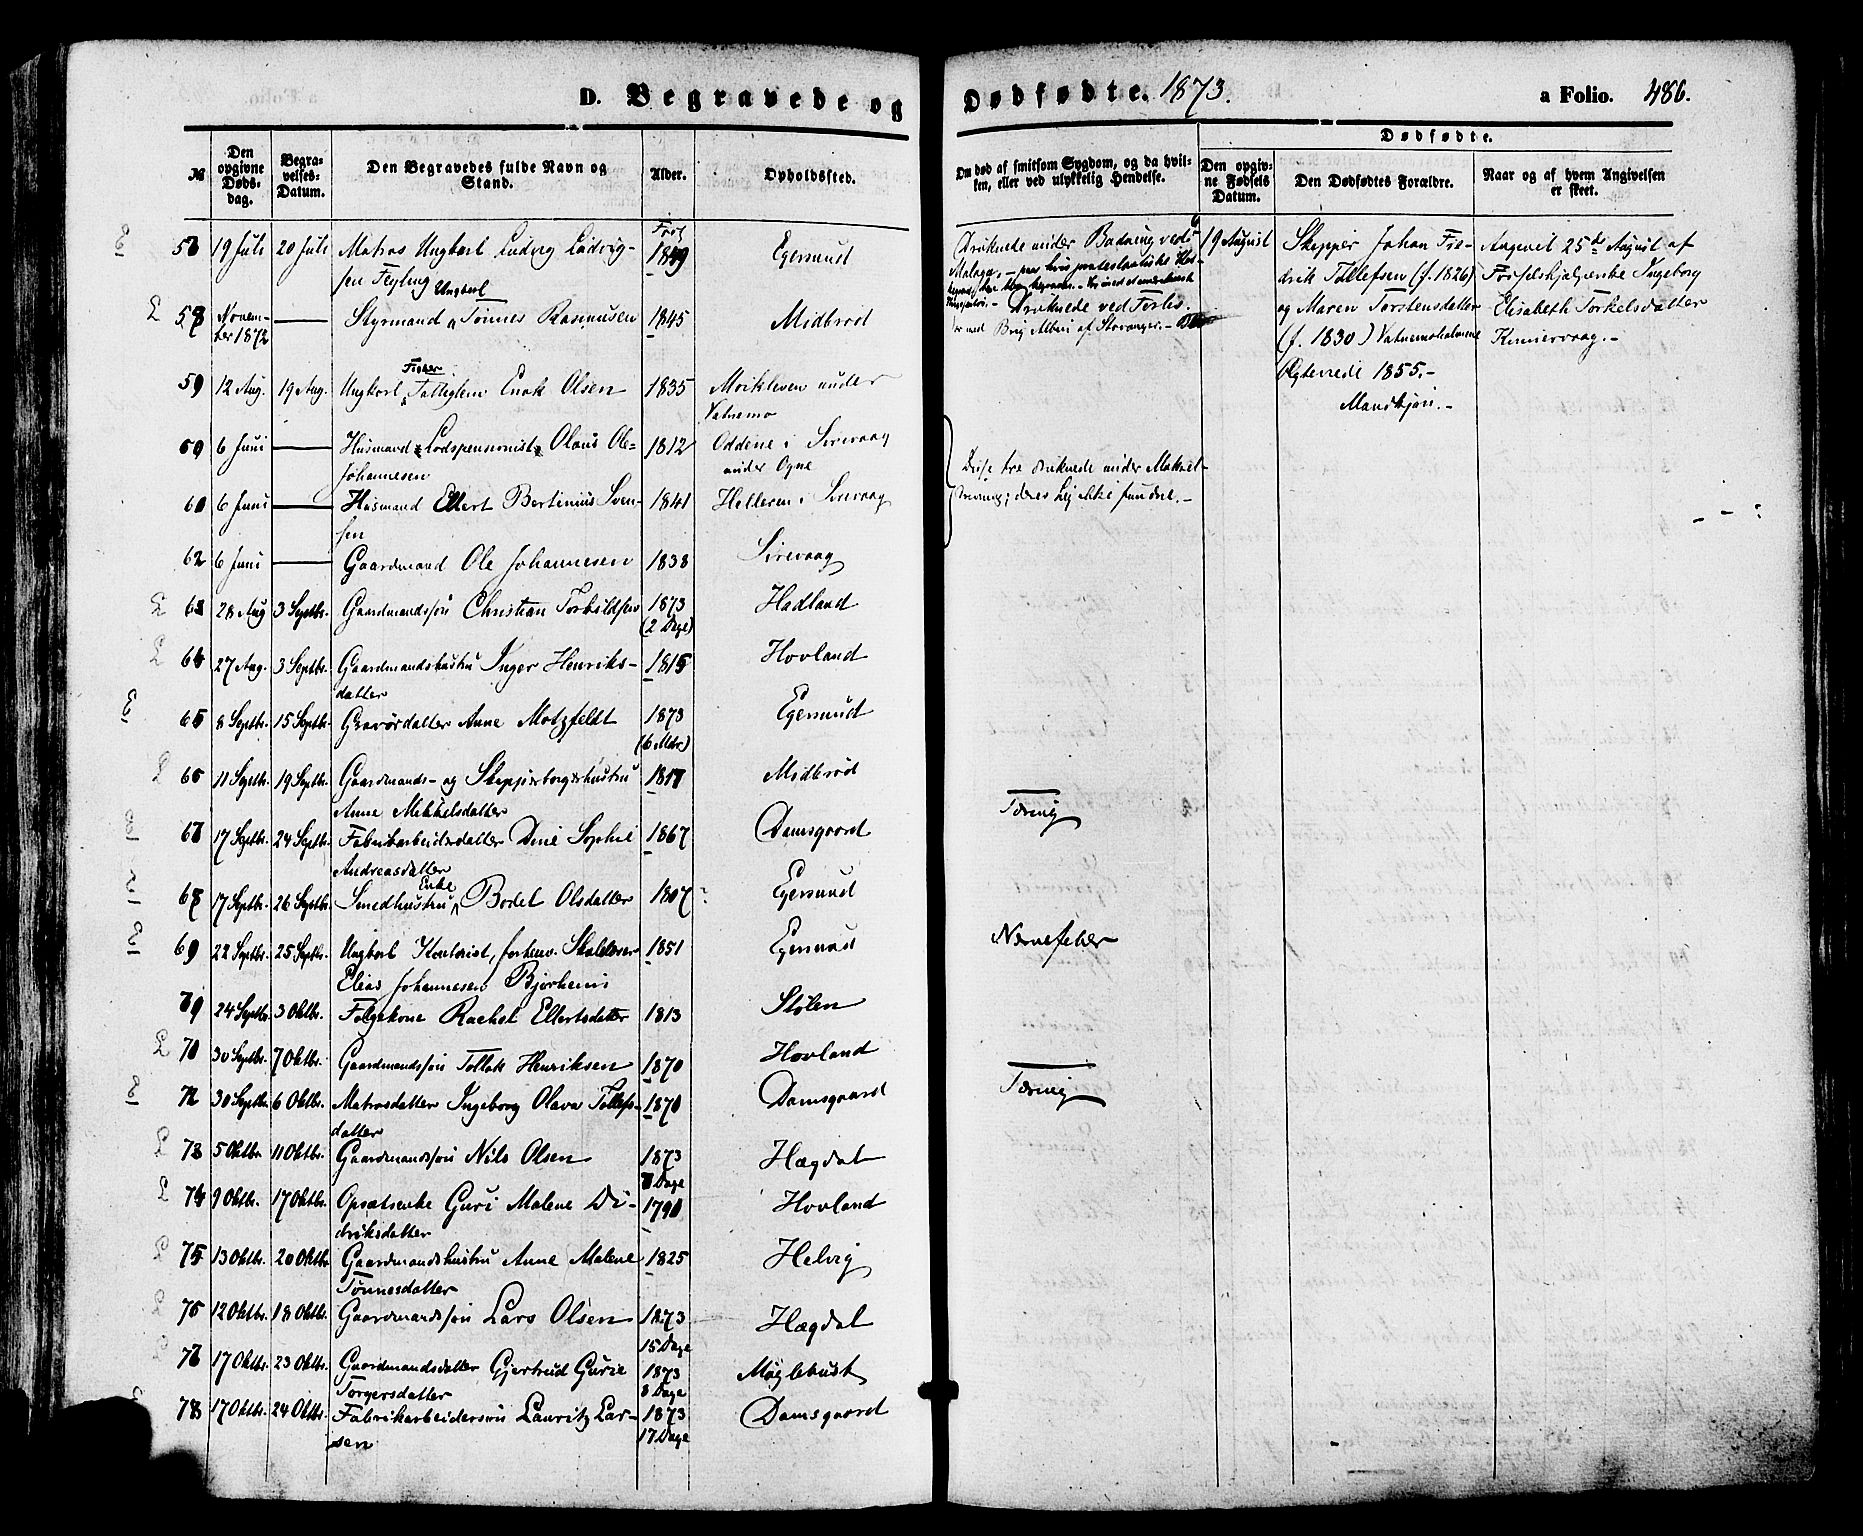 D. Begravede og Dødfødte. 1873. a Folio. 486.
№
Den opgivne Døds-dag.
Begra-velses-Datum.
Den Begravedes fulde Navn og Stand.
Alder.
Opholdssted.
Om død af smitsom Sygdom, og da hvil-ken, eller ved ulykkelig Hendelse.
Dødfødte.
Den opgiv-ne Fødsels Datum.
Den Dødfødtes Forældre.
Naar og af hvem Angivelsen er skeet.
19 Juli 20 Juli Matros Ungkarl Ludvig Ludvig- Født 1849 Egersund
sen Feyling
Druknede under Badning ved
Malaga,
19 August
Skipper Johan Fre-
drik Tollefsen (f. 1826)
og Maren Torstensdatter
(f. 1830) Vatnemoholmene
Ægteviede 1855.-
Mandkjøn.-
Angivet 25de August af
Forløselskhjælperske Ingeborg
Elisabeth Torkelsdatter
57 Novem-ber 1872 — Styrmand Ungkarl Tønnes Rasmusen 1845 Midbrød
Druknede ved Forlis
med Brig Albert af Stavanger.-
59 12 Aug. 19 Aug. Ungkarl Fisker Enok Olsen 1835 Moikleven under
Vatnemo
6 Juni — Husmand Lodspensionist Olaus Ole- 1812 Oddene i Sirevaag
Johannesen under Ogne
Disse tre druknede under Makrel-
drivning; deres Lig ikke fundne.-
60 6 Juni — Husmand Ellert Bertinius Sven- 1841 Helleren i Sirevaag
sen
62 6 Juni — Gaardmand Ole Johannesen 1838 Sirevaag
28 Aug 3 Septbr. Gaardmandssøn Christian Torkildsen 1873 Hadland
(2 Dage)
64 27 Aug. 3 Septbr. Gaardmandshustru Inger Henriks- 1815 Hovland
datter
65 8 Septbr. 15 Septbr. Gravørdatter Anne Motzfeldt 1873 Egersund
(6 Mdr.)
11 Septbr. 19 Septbr. Gaardmands- og Skipperborgerhustru 1817 Midbrød
Anne Mikkelsdatter
17 Septbr. 24 Septbr. Fabrikarbeiderdatter Dine Sophie 1867 Damsgaard Tæring
Andreasdatter
17 Septbr. 26 Septbr. Smedhustru Enke Bodel Olsdatter 1807 Egersund
69 22 Septbr. 25 Septbr. Ungkarl Kontorist, forhenv. Skolelærer 1851 Egersund Nervefeber
Elias Johannesen Bjørheim
24 Septbr. 3 Oktbr. Følgekone Rachel Ellertsdatter 1813 Stølen
30 Septbr. 7 Oktbr. Gaardmandssøn Tollak Henriksen 1870 Hovland
72 30 Septbr. 6 Oktbr. Matrosdatter Ingeborg Olava Tollefs- 1870 Damsgaard Tæring
datter
73 5 Oktbr. 11 Oktbr. Gaardmandssøn Nils Olsen 1873 Hægdal
Dage
74 9 Oktbr. 17 Oktbr. Opsætsenke Guri Malene Di- 1790 Hovland
driksdatter
75 13 Oktbr. 20 Oktbr. Gaardmandshustru Anne Malene 1825 Helvig
Tønnesdatter
12 Oktbr. 18 Oktbr. Gaardmandssøn Lars Olsen 1873 Hægdal
15 Dage
17 Oktbr. 23 Oktbr. Gaardmandsdatter Gjertrud Gurie 1873 Møglebust
Torgersdatter 8 Dage
78 17 Oktbr. 24 Oktbr. Fabrikarbeidersøn Lauritz Lar- 1873 Damsgaard
sen 17 Dage